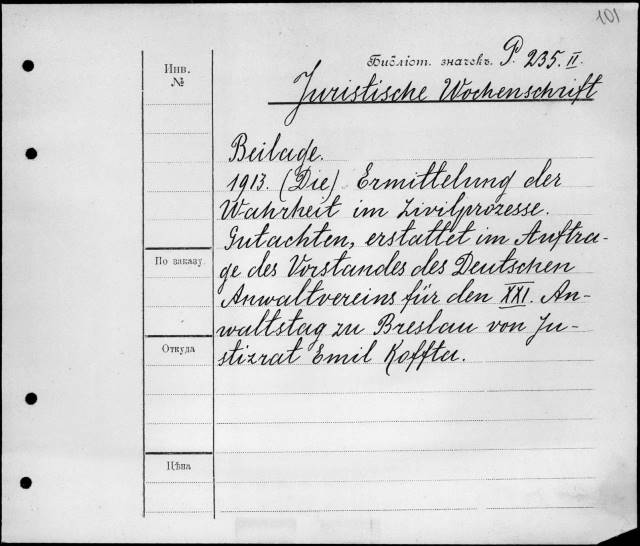 101
Библіот. значекъ. P. 235. II.
Juristische Wochenschrift
Инв.
№
Beilage.
1913. (Die) Ermittelung der
Wahrheit im Zivilprozesse.
Gutachten, erstattet im Auftra-
ge des Vorstandes des Deutschen
Anwaltvereins für den XXI. An-
waltstag zu Breslau von Ju-
stizrat Emil Koffka.
По заказу.
Откуда
Цѣна